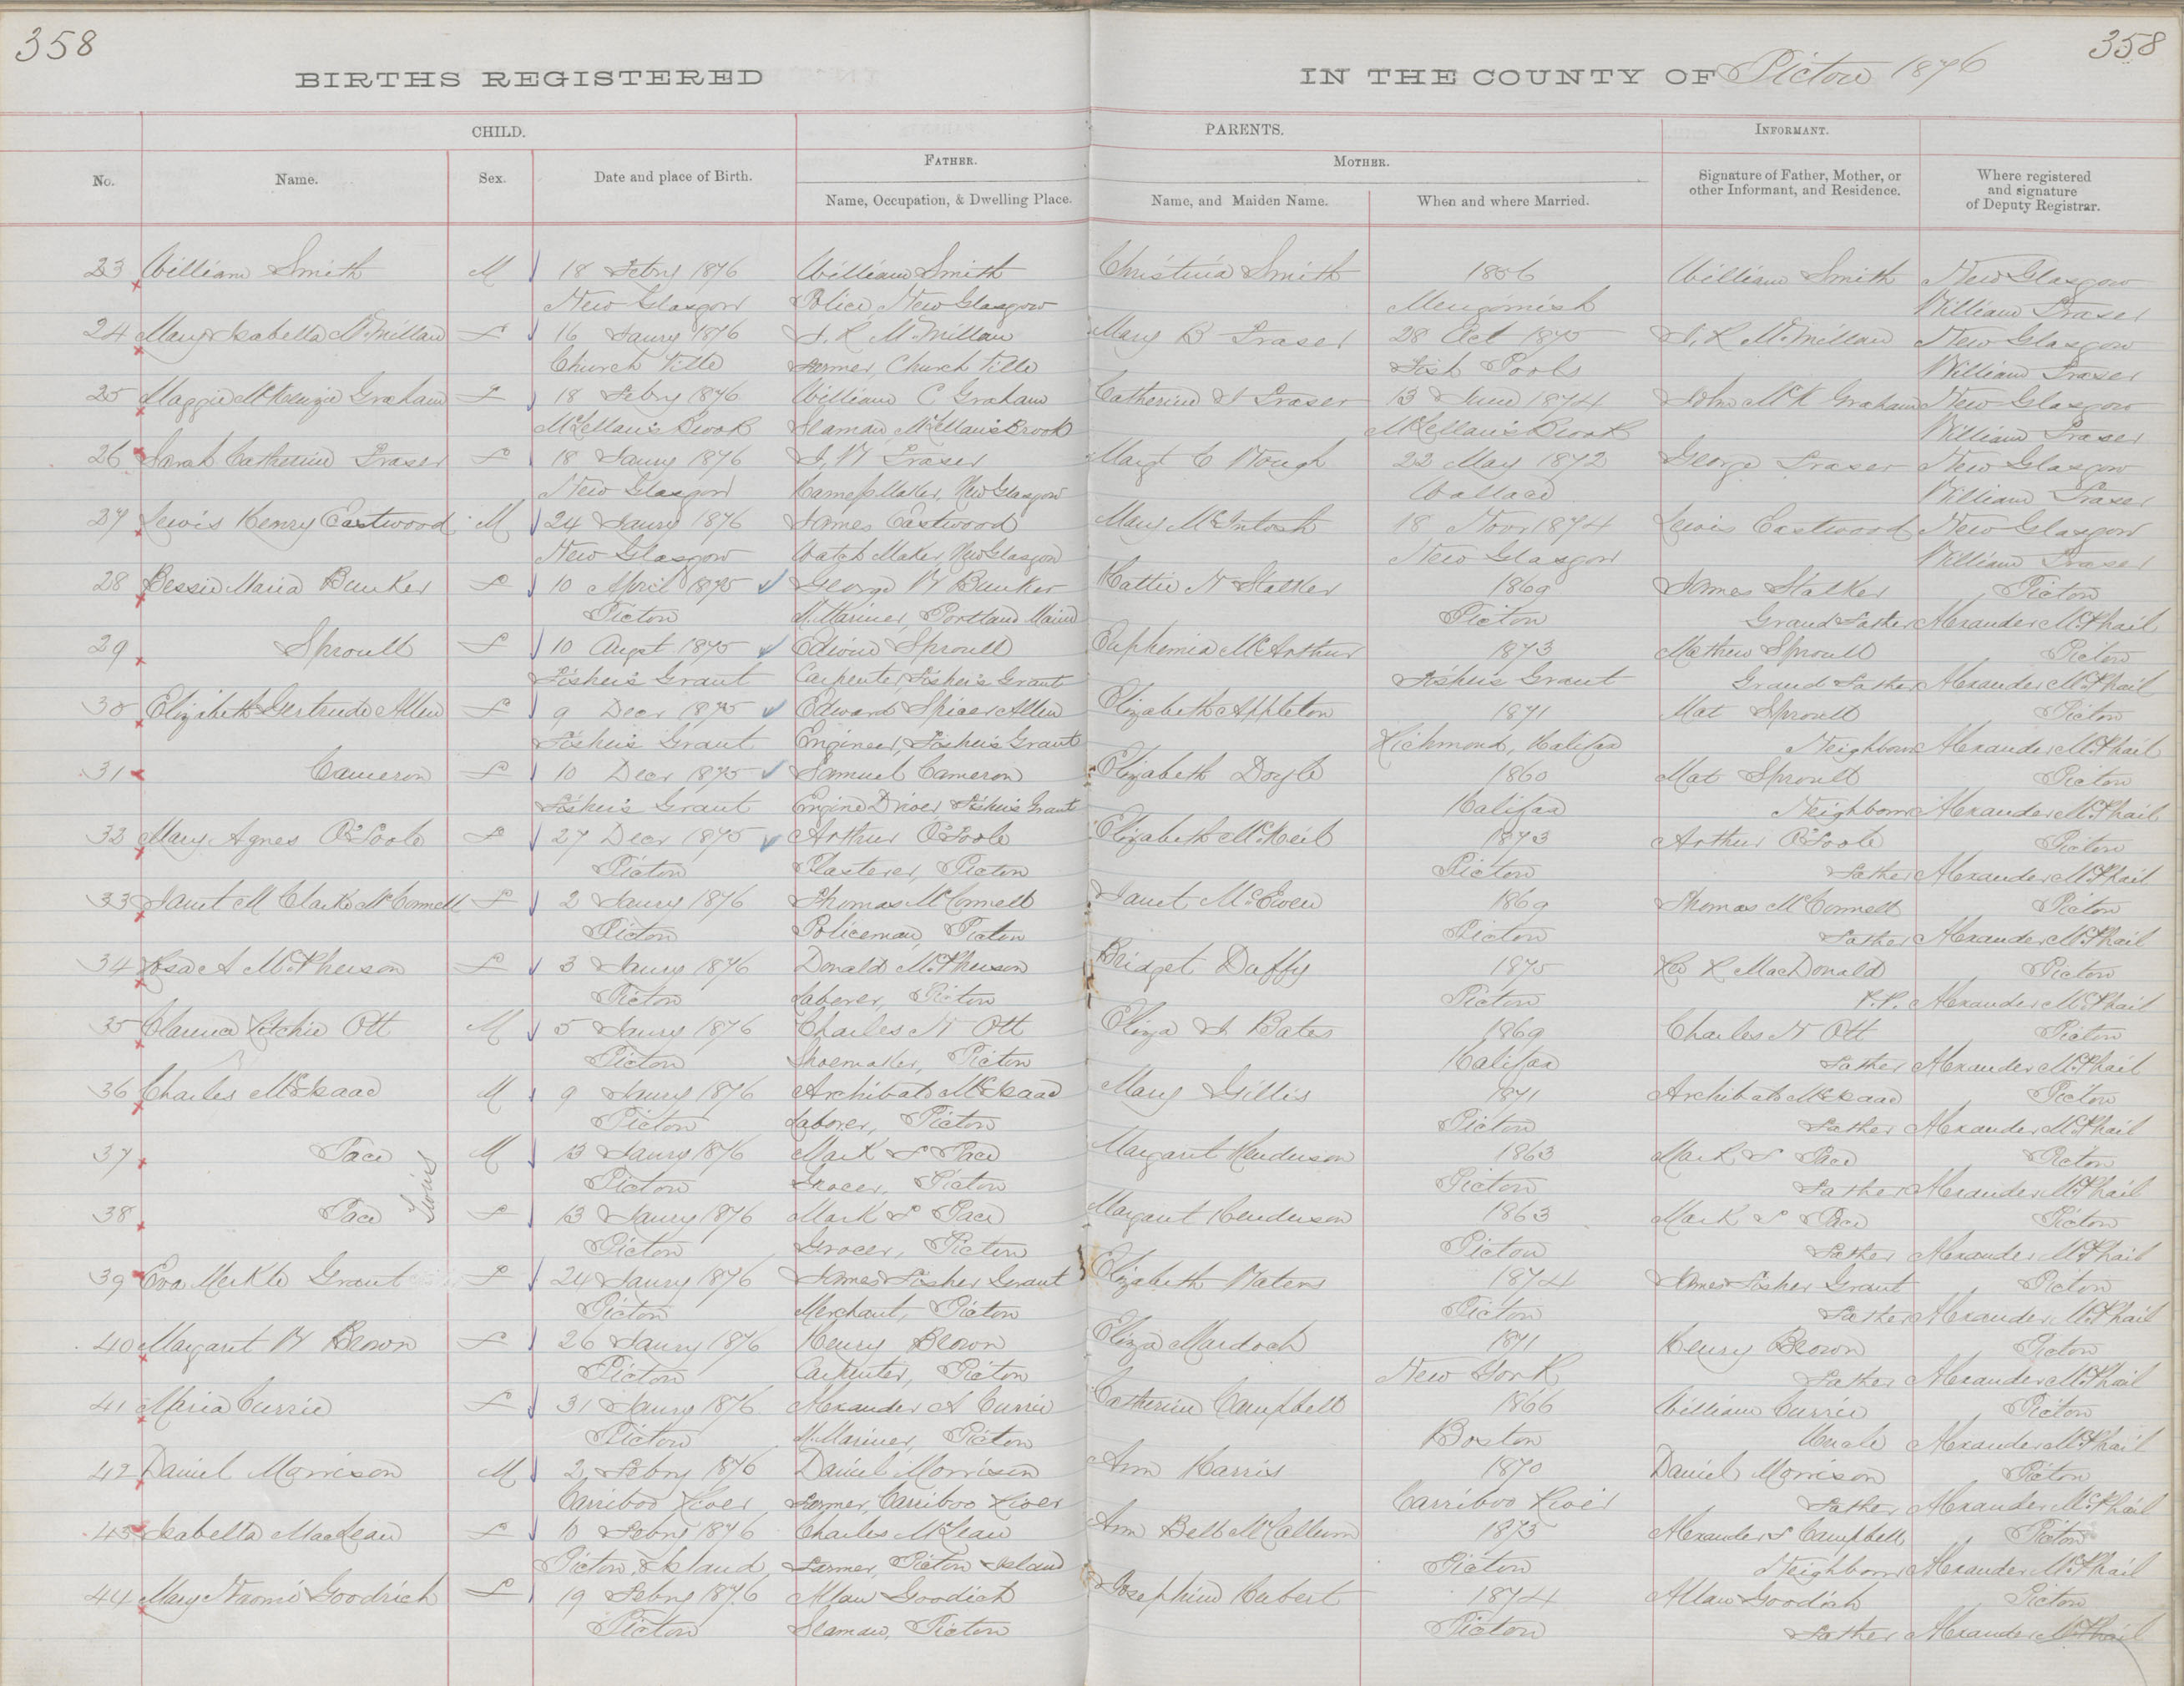 358
358
BIRTHS REGISTERED IN THE COUNTY OF Pictou 1876
CHILD. PARENTS. INFORMANT.
FATHER. MOTHER.
No. Name. Sex. Date and place of Birth. Name, Occupation, & Dwelling Place. Name, and Maiden Name. When and where Married. Signature of Father, Mother, or other Informant, and Residence. Where registered and signature of Deputy Registrar.
23 William Smith M 18 Febry 1876 William Smith Christina Smith 1856 William Smith New Glasgow
New Glasgow Police, New Glasgow Merigomish William Fraser
24 Mary Isabella McMillan F 16 Jaury 1876 McMillan Mary B Fraser 28 Oct 1870 McMillan New Glasgow
Church Ville Farmer, Church Ville Fish Pools William Fraser
25 Maggie McKenzie Graham F 18 Febry 1876 William C Graham Catherine Fraser 13 June 1874 John McK Graham New Glasgow
McLellan's Brook Seaman, McLellan's Brook McLellan's Brook William Fraser
26 Sarah Catherine Fraser F 18 Jaury 1876 Fraser Margt C 22 May 1872 George Fraser New Glasgow
New Glasgow Harness Maker, New Glasgow Wallace William Fraser
27 Lewis Henry Eastwood M 24 Jaury 1876 James Eastwood Mary McIntosh 18 Novr 1874 Lewis Eastwood New Glasgow
New Glasgow Watch Maker, New Glasgow New Glasgow William Fraser
28 Bessie Maria Bunker F 10 April 1875 George W Bunker Hattie N Stalker 1869 James Stalker Pictou
Pictou M. Mariner, Portland Maine Pictou Grand Father Alexander McPhail
29 Sproull F 10 Augst 1875 Edwin Sproull Euphemia McArthur 1873 Mathew Sproull Pictou
Fisher's Grant Carpenter, Fisher's Grant Fisher's Grant Grand Father Alexander McPhail
30 Elizabeth Gertrude Allen F 9 Decr 1875 Edward Spicer Allen Elizabeth Appleton 1871 Mat Sproull Pictou
Fisher's Grant Engineer, Fisher's Grant Richmond, Halifax Neighbour Alexander McPhail
31 Cameron F 10 Decr 1875 Samuel Cameron Elizabeth Doyle 1860 Mat Sproull Pictou
Fisher's Grant Engine Driver, Fisher's Grant Halifax Neighbour Alexander McPhail
32 Mary Agnes O'Toole F 27 Decr 1875 Arthur O'Toole Elizabeth McNeil 1873 Arthur O'Toole Pictou
Pictou Plasterer, Pictou Pictou Father Alexander McPhail
33 Janet M Clarke McConnell F 2 Jaury 1876 Thomas McConnell Janet McEwen 1869 Thomas McConnell Pictou
Pictou Policeman, Pictou Pictou Father Alexander McPhail
34 Rosa A McPherson F 3 Jaury 1876 Donald McPherson Bridget Duffy 1875 R MacDonald Pictou
Pictou Laborer, Pictou Pictou P.P. Alexander McPhail
35 Clarence Ritchie Ott M 5 Jaury 1876 Charles N Ott Eliza J. Bates 1869 Charles N Ott Pictou
Pictou Shoemaker, Pictou Halifax Father Alexander McPhail
36 Charles McIsaac M 9 Jaury 1876 Archibald McIsaac Mary Gillis 1871 Archibald McIsaac Pictou
Pictou Laborer, Pictou Pictou Father Alexander McPhail
37 Pace M 13 Jaury 1876 Mark F Pace Margaret Henderson 1863 Mark F Pace Pictou
Twins
Pictou Grocer, Pictou Pictou Father Alexander McPhail
38 Pace F 13 Jaury 1876 Mark F Pace Margaret Henderson 1863 Mark F Pace Pictou
Pictou Grocer, Pictou Pictou Father Alexander McPhail
39 Eva Merkle Grant F 24 Jaury 1876 James Fisher Grant Elizabeth Waters 1874 James Fisher Grant Pictou
Pictou Merchant, Pictou Pictou Father Alexander McPhail
40 Margaret W Brown F 26 Jaury 1876 Henry Brown Eliza Murdoch 1871 Henry Brown Pictou
Pictou Carpenter, Pictou New York Father Alexander McPhail
41 Maria Currie F 31 Jaury 1876 Alexander A Currie Catherine Campbell 1866 William Currie Pictou
Pictou M. Mariner, Pictou Boston Uncle Alexander McPhail
42 Daniel Morrison M 2 Febry 1876 Daniel Morrison Ann Harris 1870 Daniel Morrison Pictou
Carriboo River Farmer, Carriboo River Carriboo River Father Alexander McPhail
43 Isabella MacLean F 10 Febry 1876 Charles McLean Ann Bell McCallum 1873 Alexander F Campbell Pictou
Pictou Island Farmer, Pictou Island Pictou Neighbour Alexander McPhail
44 Mary Naomi Goodrich F 19 Febry 1876 Allan Goodich Josephine Hubert 1874 Allan Goodich Pictou
Pictou Seaman, Pictou Pictou Father Alexander McPhail